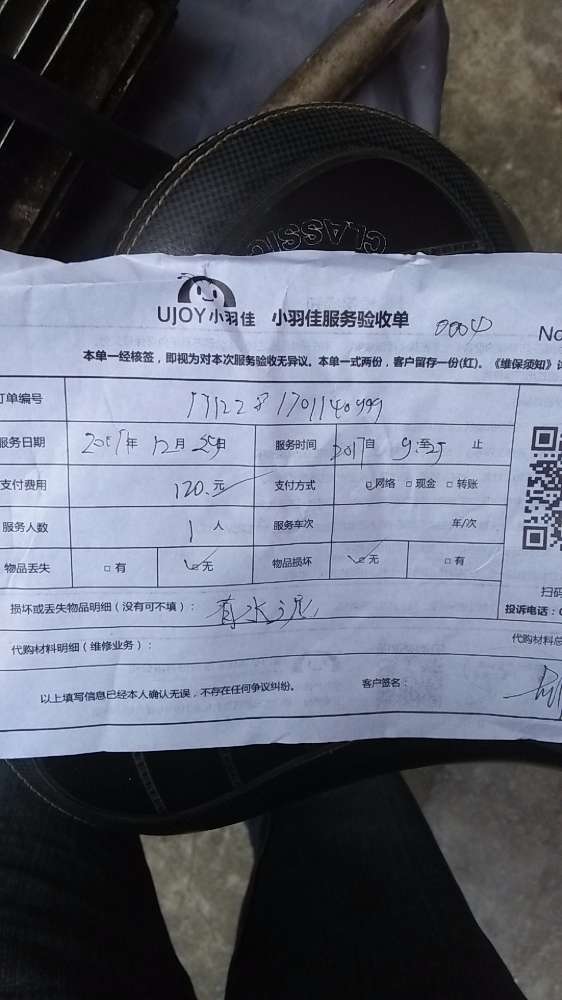 CLASSIC
UJOY小羽佳 小羽佳服务验收单 No
本单一经核签，即视为对本次服务验收无异议。本单一式两份，客户留存一份(红)。《维保须知》
订单编号
服务日期 年 12月 29日 服务时间 2017自 9:至25 止
支付费用 120.元 支付方式 网络 □ 现金 □ 转账
服务人数 1 人 服务车次 年/次
物品丢失 □ 有 无 物品损坏 无 □ 有
扫码
损坏或丢失物品明细（没有可不填）： 有水泥
投诉电话：
代购材料明细（维修业务）： 代购材料总
以上填写信息已经本人确认无误，不存在任何争议纠纷。 客户签名：